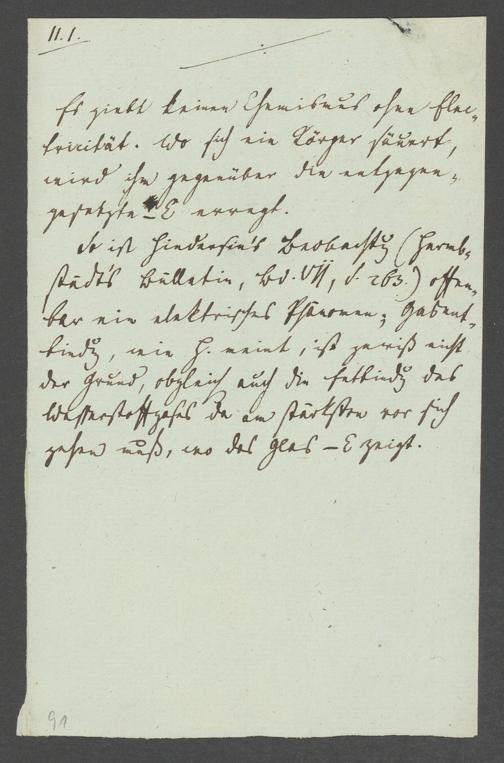 11.1.
Es giebt keinen Chemismus ohne Elec-
tricität. Wo sich ein Körper säuert,
wird ihm gegenüber die entgegen-
gesetzte – E erregt.
So ist Hindersin's Beobachtg (Hermb-
städt's Bülletin, Bd. VII, S. 263.) offen-
bar ein elektrisches Phänomen; Gasent-
bindg, wie H. meint, ist gewiß nicht
der Grund, obgleich auch die Entbindg des
Wasserstoffgases da am stärksten vor sich
gehen muß, wo das Glas – E zeigt.
91